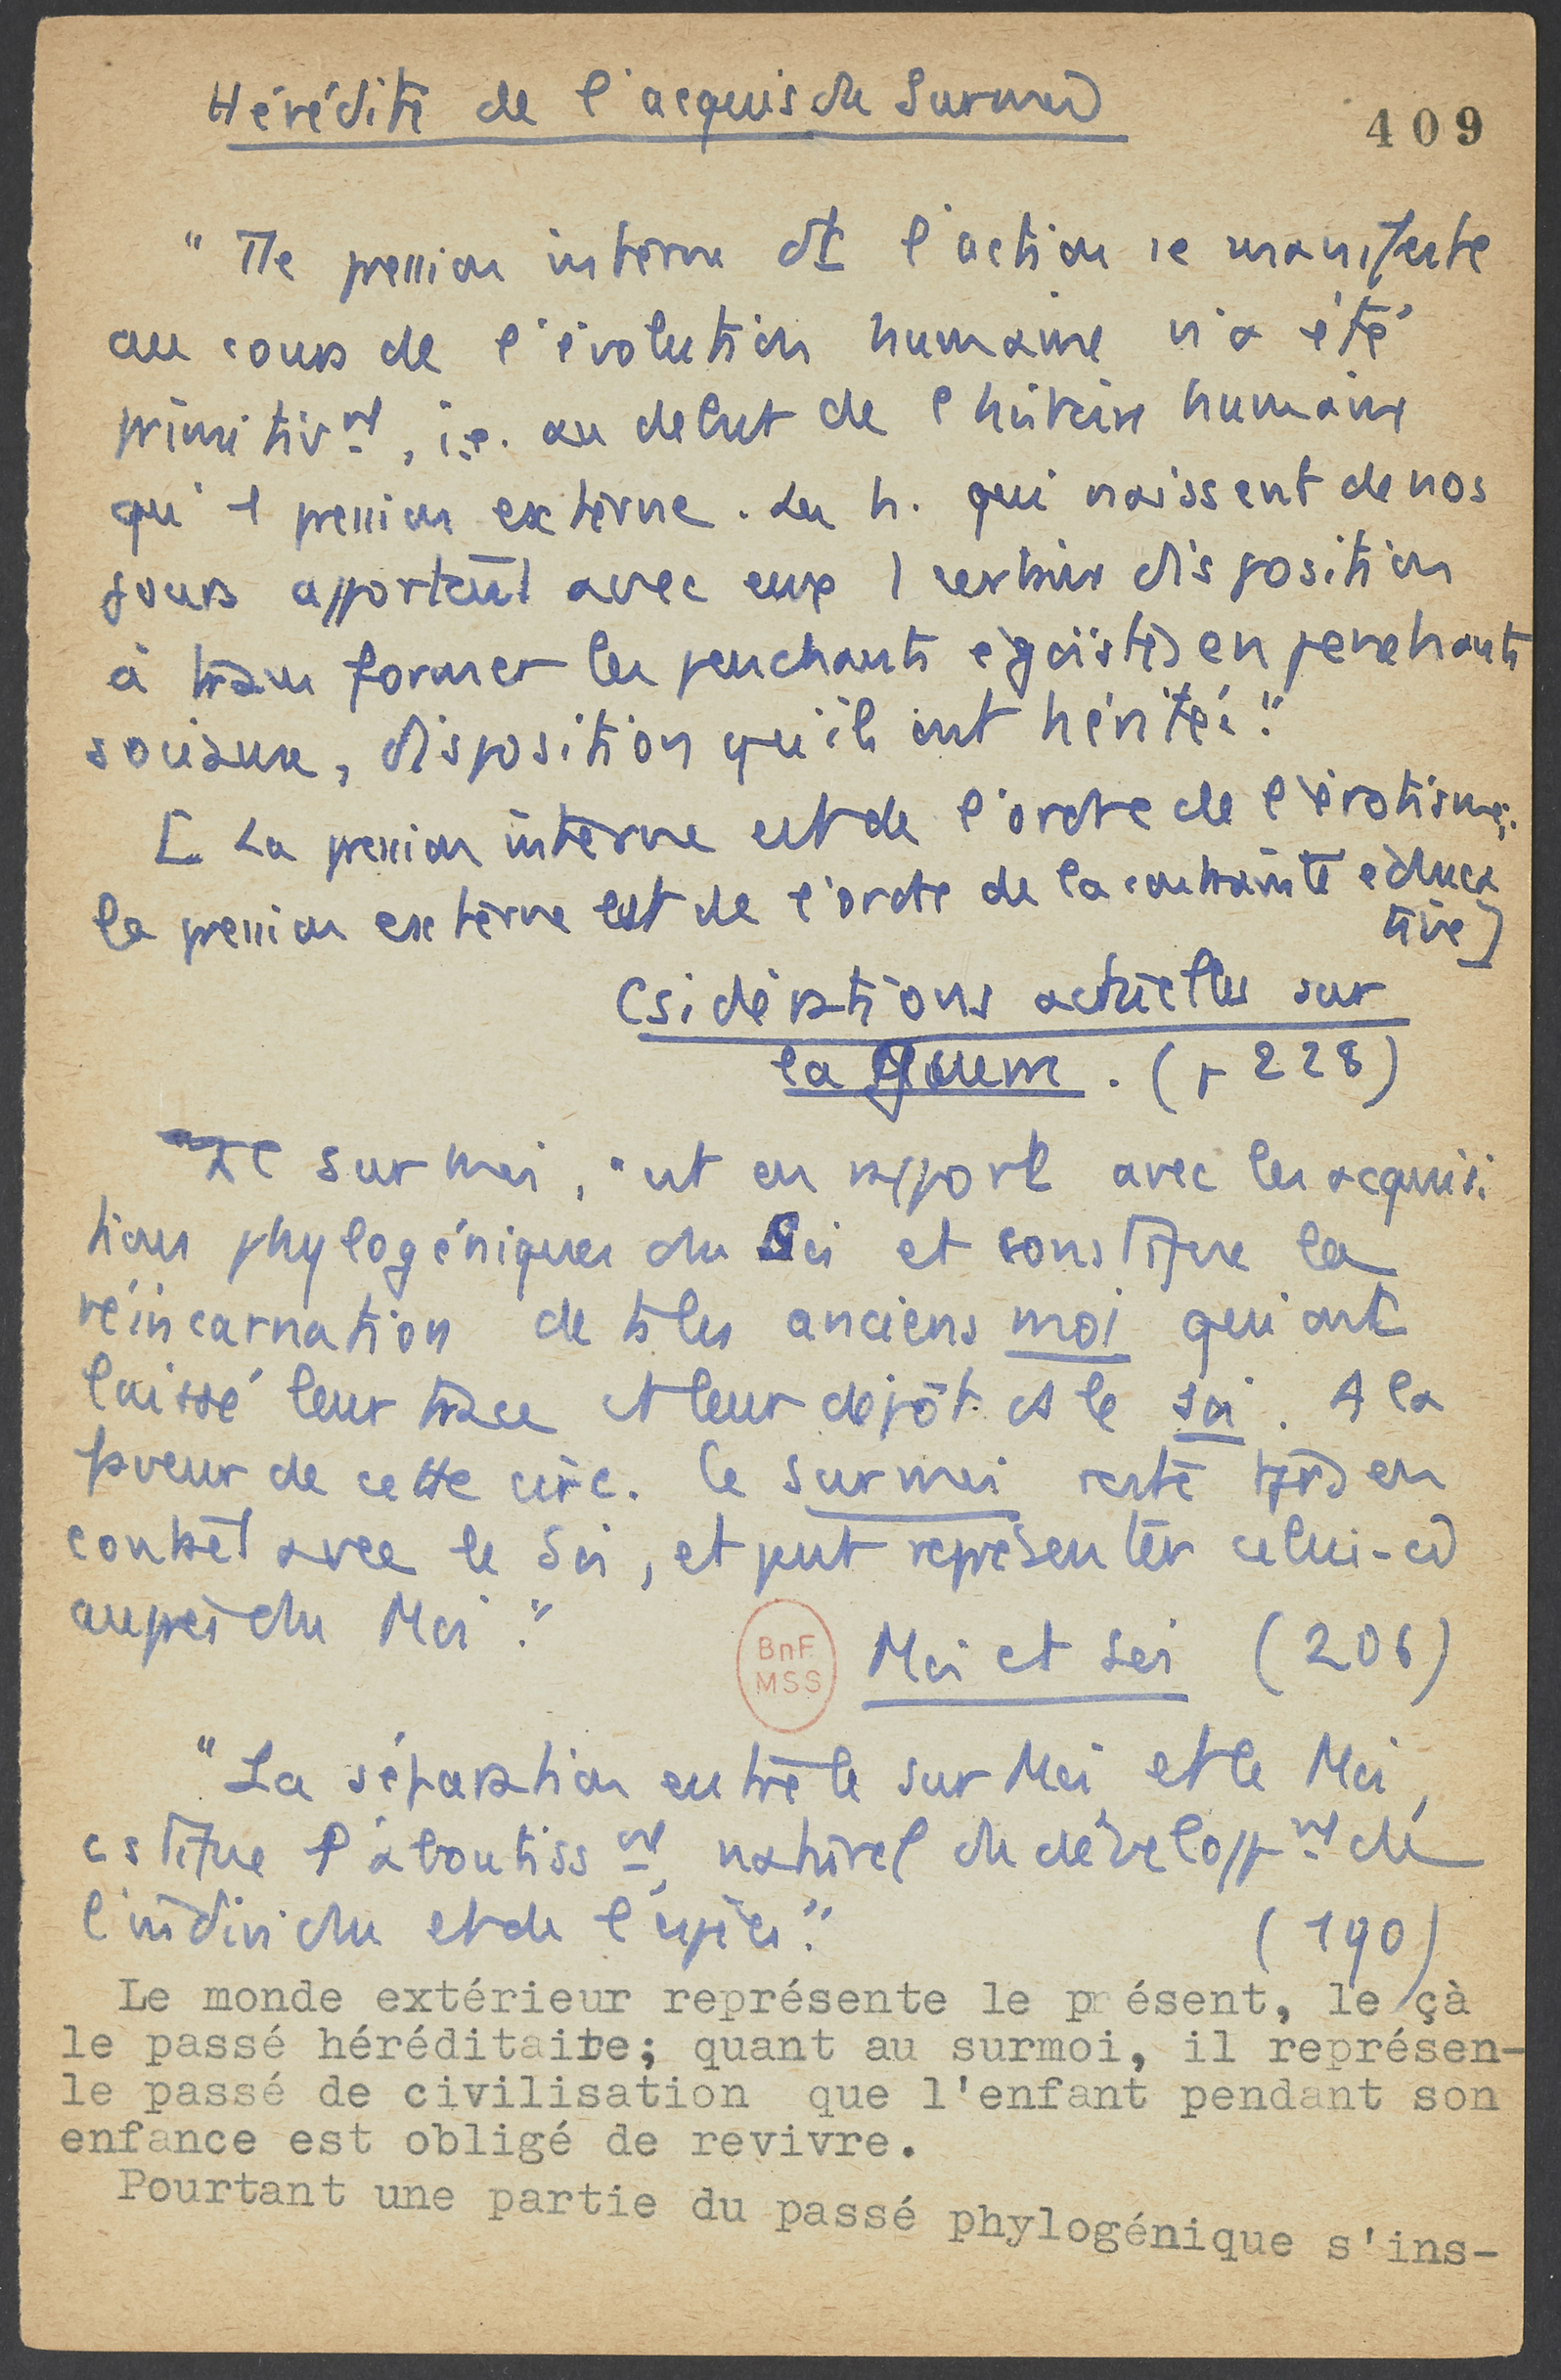 Hérédité de l'acquis du Surmoi
409
"Tte pression interne dt l'action se manifeste
au cours de l'évolution humaine n'a été
primitivmt, i.e. au debut de l'histoire humaine
qu'1 pression externe. Les h. qui naissent de nos
jours apportent avec eux 1 certaine disposition
à transformer les penchants égoïstes en penchants
sociaux, disposition qu'ils ont héritée."
[La pression interne est de l'ordre de l'érotisme;
la pression externe est de l'ordre de la contrainte éduca
tive]
Csidérations actuelles sur
la guerre. (p 228)
Le surmoi, "est en rapport avec les acquisi
tions phylogéniques du Soi et constitue la
réincarnation de ts les anciens moi qui ont
laissé leur trace et leur dépôt ds le soi. A la
faveur de cette circ. le surmoi reste tjrs en
contact avec le Soi, et peut représenter celui-ci
auprès du Moi."
BnF
MSS
Moi et Soi (206)
"La séparation entre le sur Moi et le Moi,
cstitue l'aboutissmt naturel du développmt de
l'individu et de l'espèce."
(190)
Le monde extérieur représente le présent, le çà
le passé héréditaire; quant au surmoi, il représen-
le passé de civilisation que l'enfant pendant son
enfance est obligé de revivre.
Pourtant une partie du passé phylogénique s'ins-